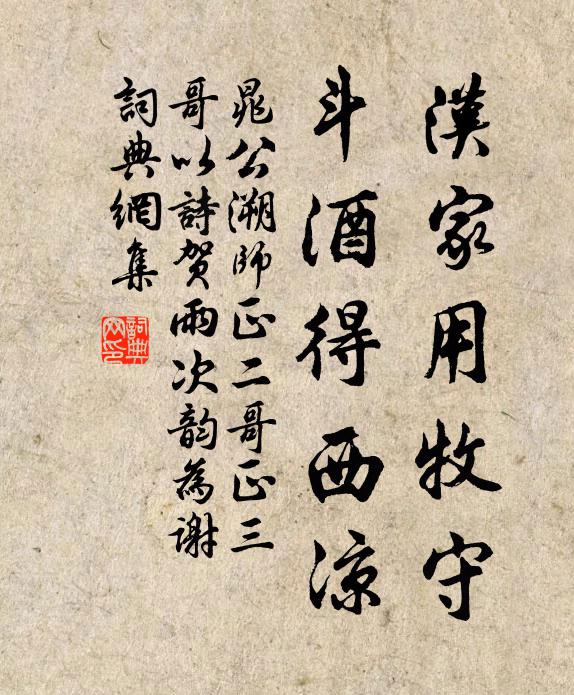 漢家用牧守
斗酒得西涼
晁公溯師正二哥正三
哥以詩賀雨次韵為謝
詞典網集
詞典
网印